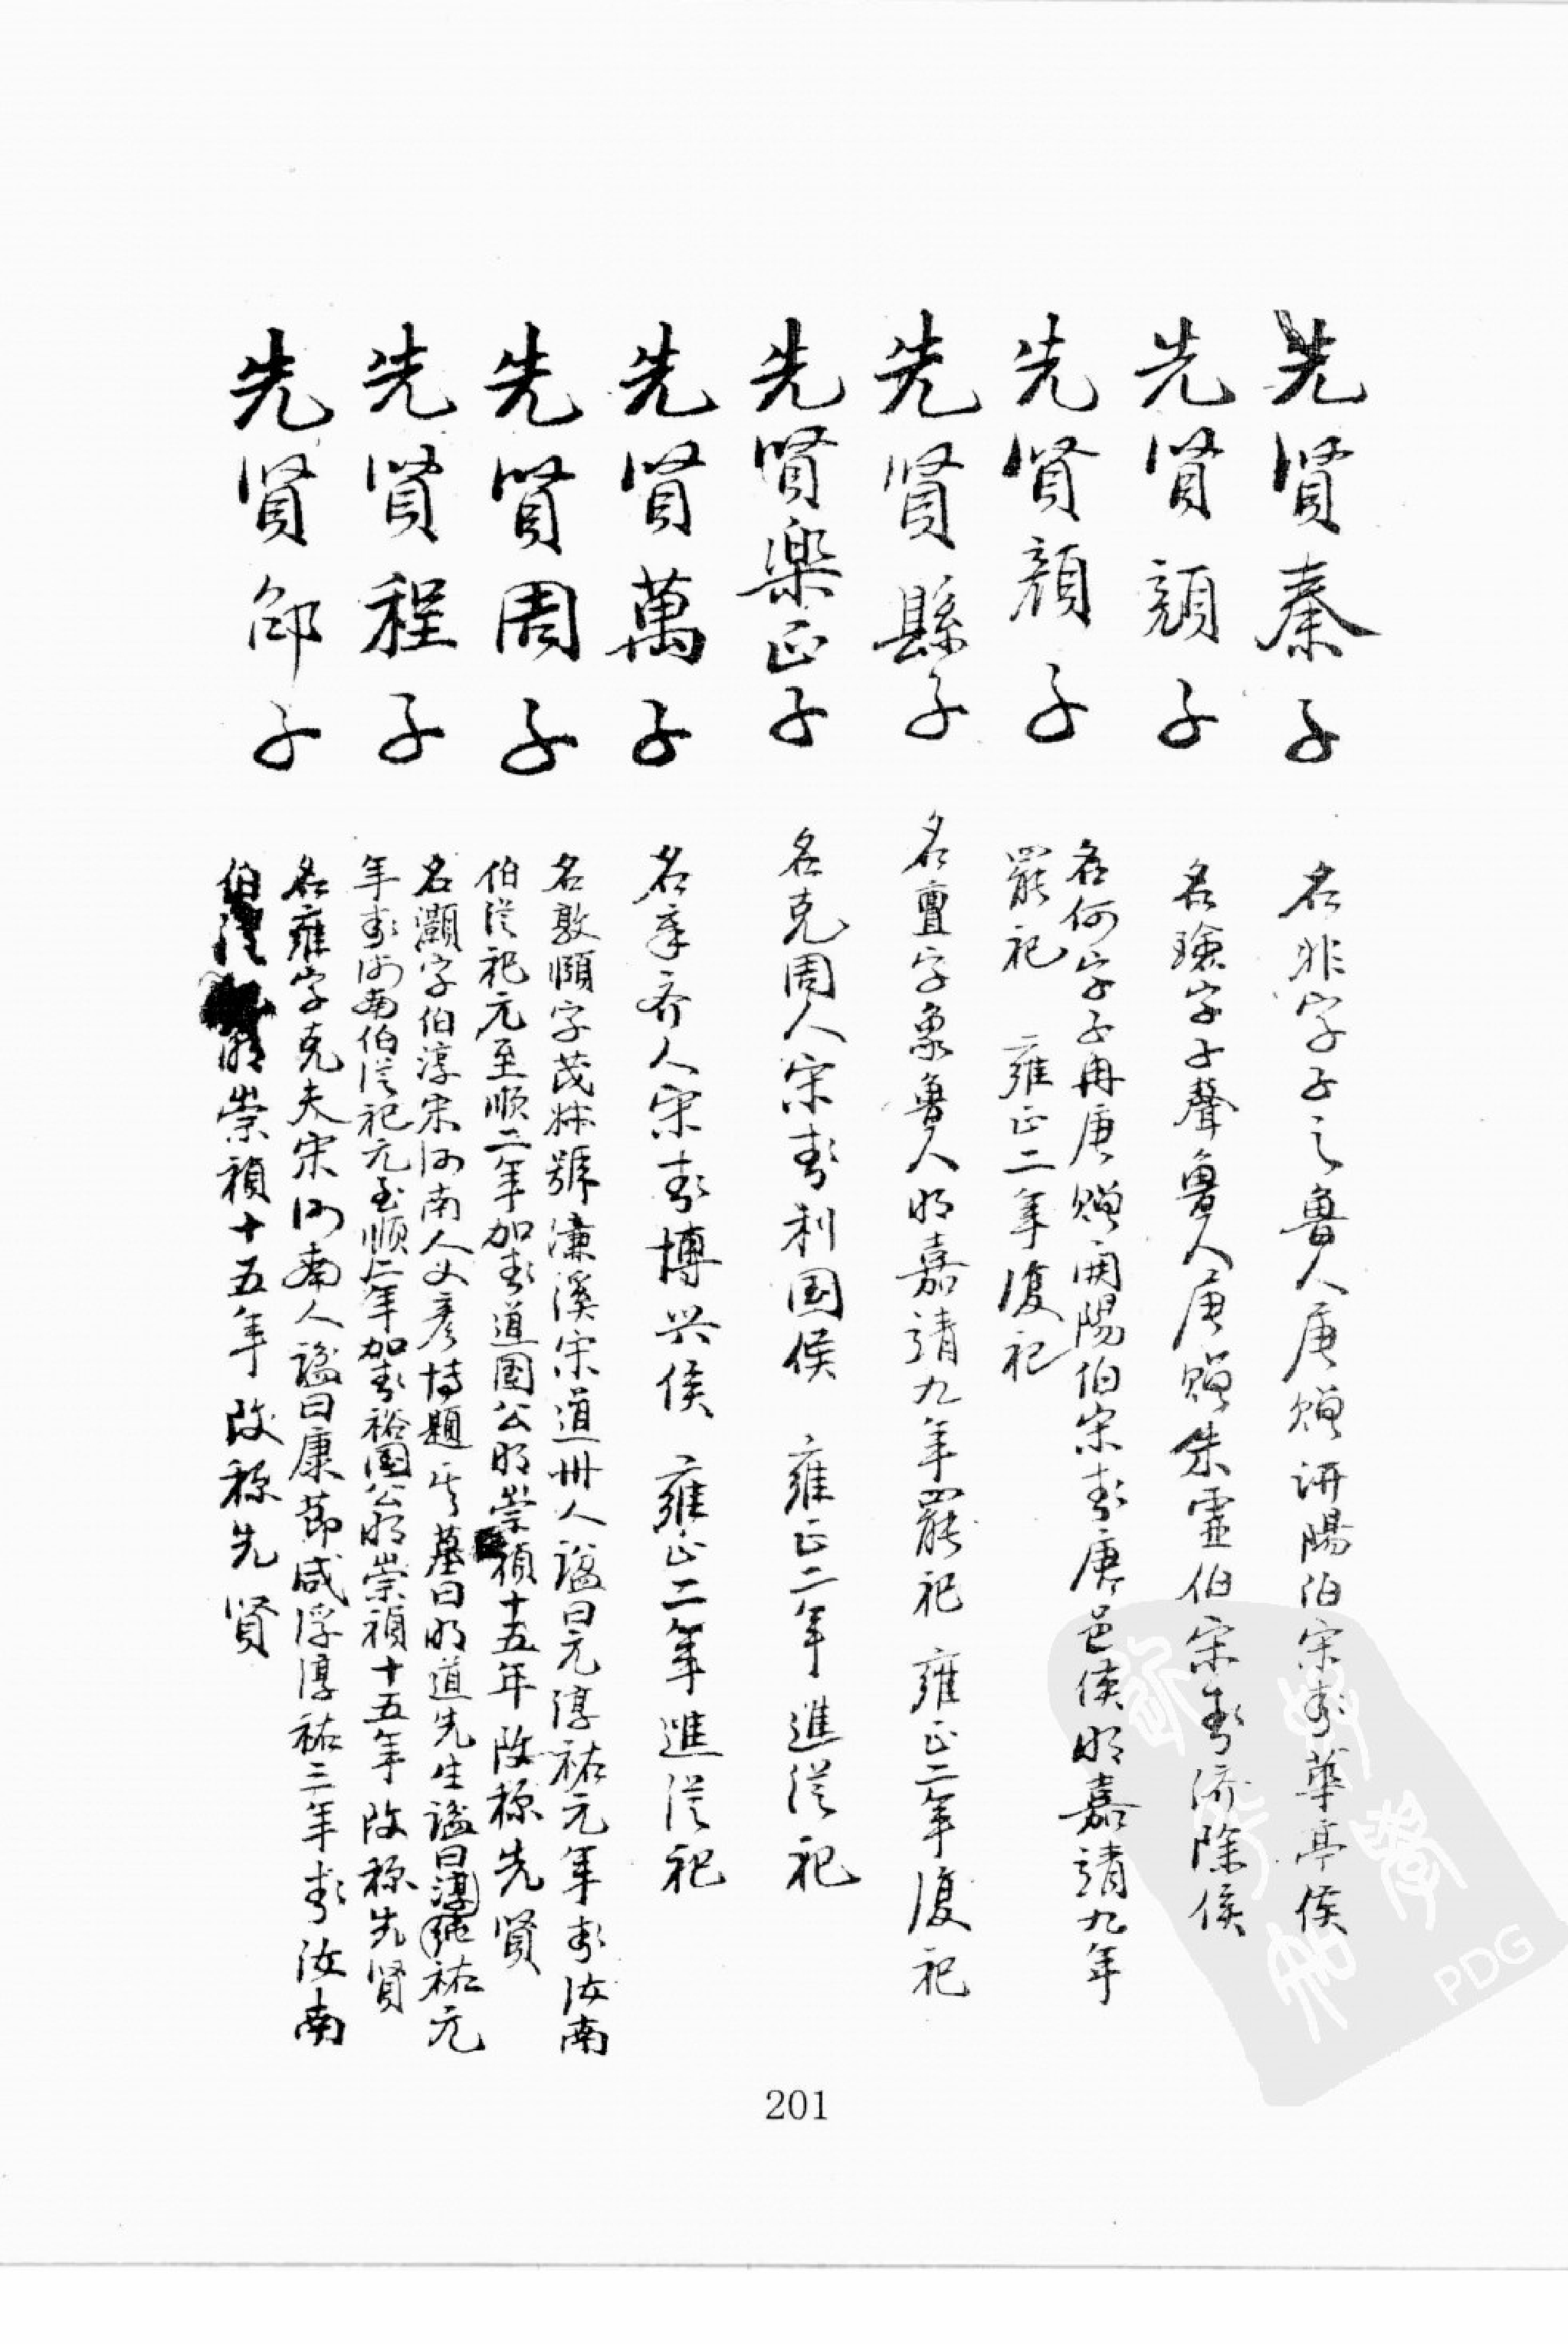 先贤秦子
名非字子之魯人唐赠汧陽伯宋封華亭侯
先贤顔子
名璯字子聲魯人唐赠朱虚伯宋封济陰侯
先贤顔子
名何字子冉唐赠開陽伯宋封唐邑侯明嘉靖九年
罷祀 雍正二年復祀
先贤縣子
名亶字象魯人明嘉靖九年罷祀 雍正二年復祀
先贤樂正子
名克周人宋封利国侯 雍正二年進從祀
先贤萬子
名章齐人宋封博兴侯 雍正二年進從祀
先贤周子
名敦頤字茂叔號濂溪宋道州人諡曰元淳祐元年封汝南
伯從祀元至顺二年加封道國公明崇禎十五年改称先贤
先贤程子
名灝字伯淳宋河南人文彦博題其墓曰明道先生諡曰淳純祐元
年封河南伯從祀元至顺二年加封裕国公明崇禎十五年改称先贤
先贤邵子
名雍字克夫宋河南人諡曰康節咸淳淳祐三年封汝南
伯從明崇禎十五年改称先贤
201
PDG